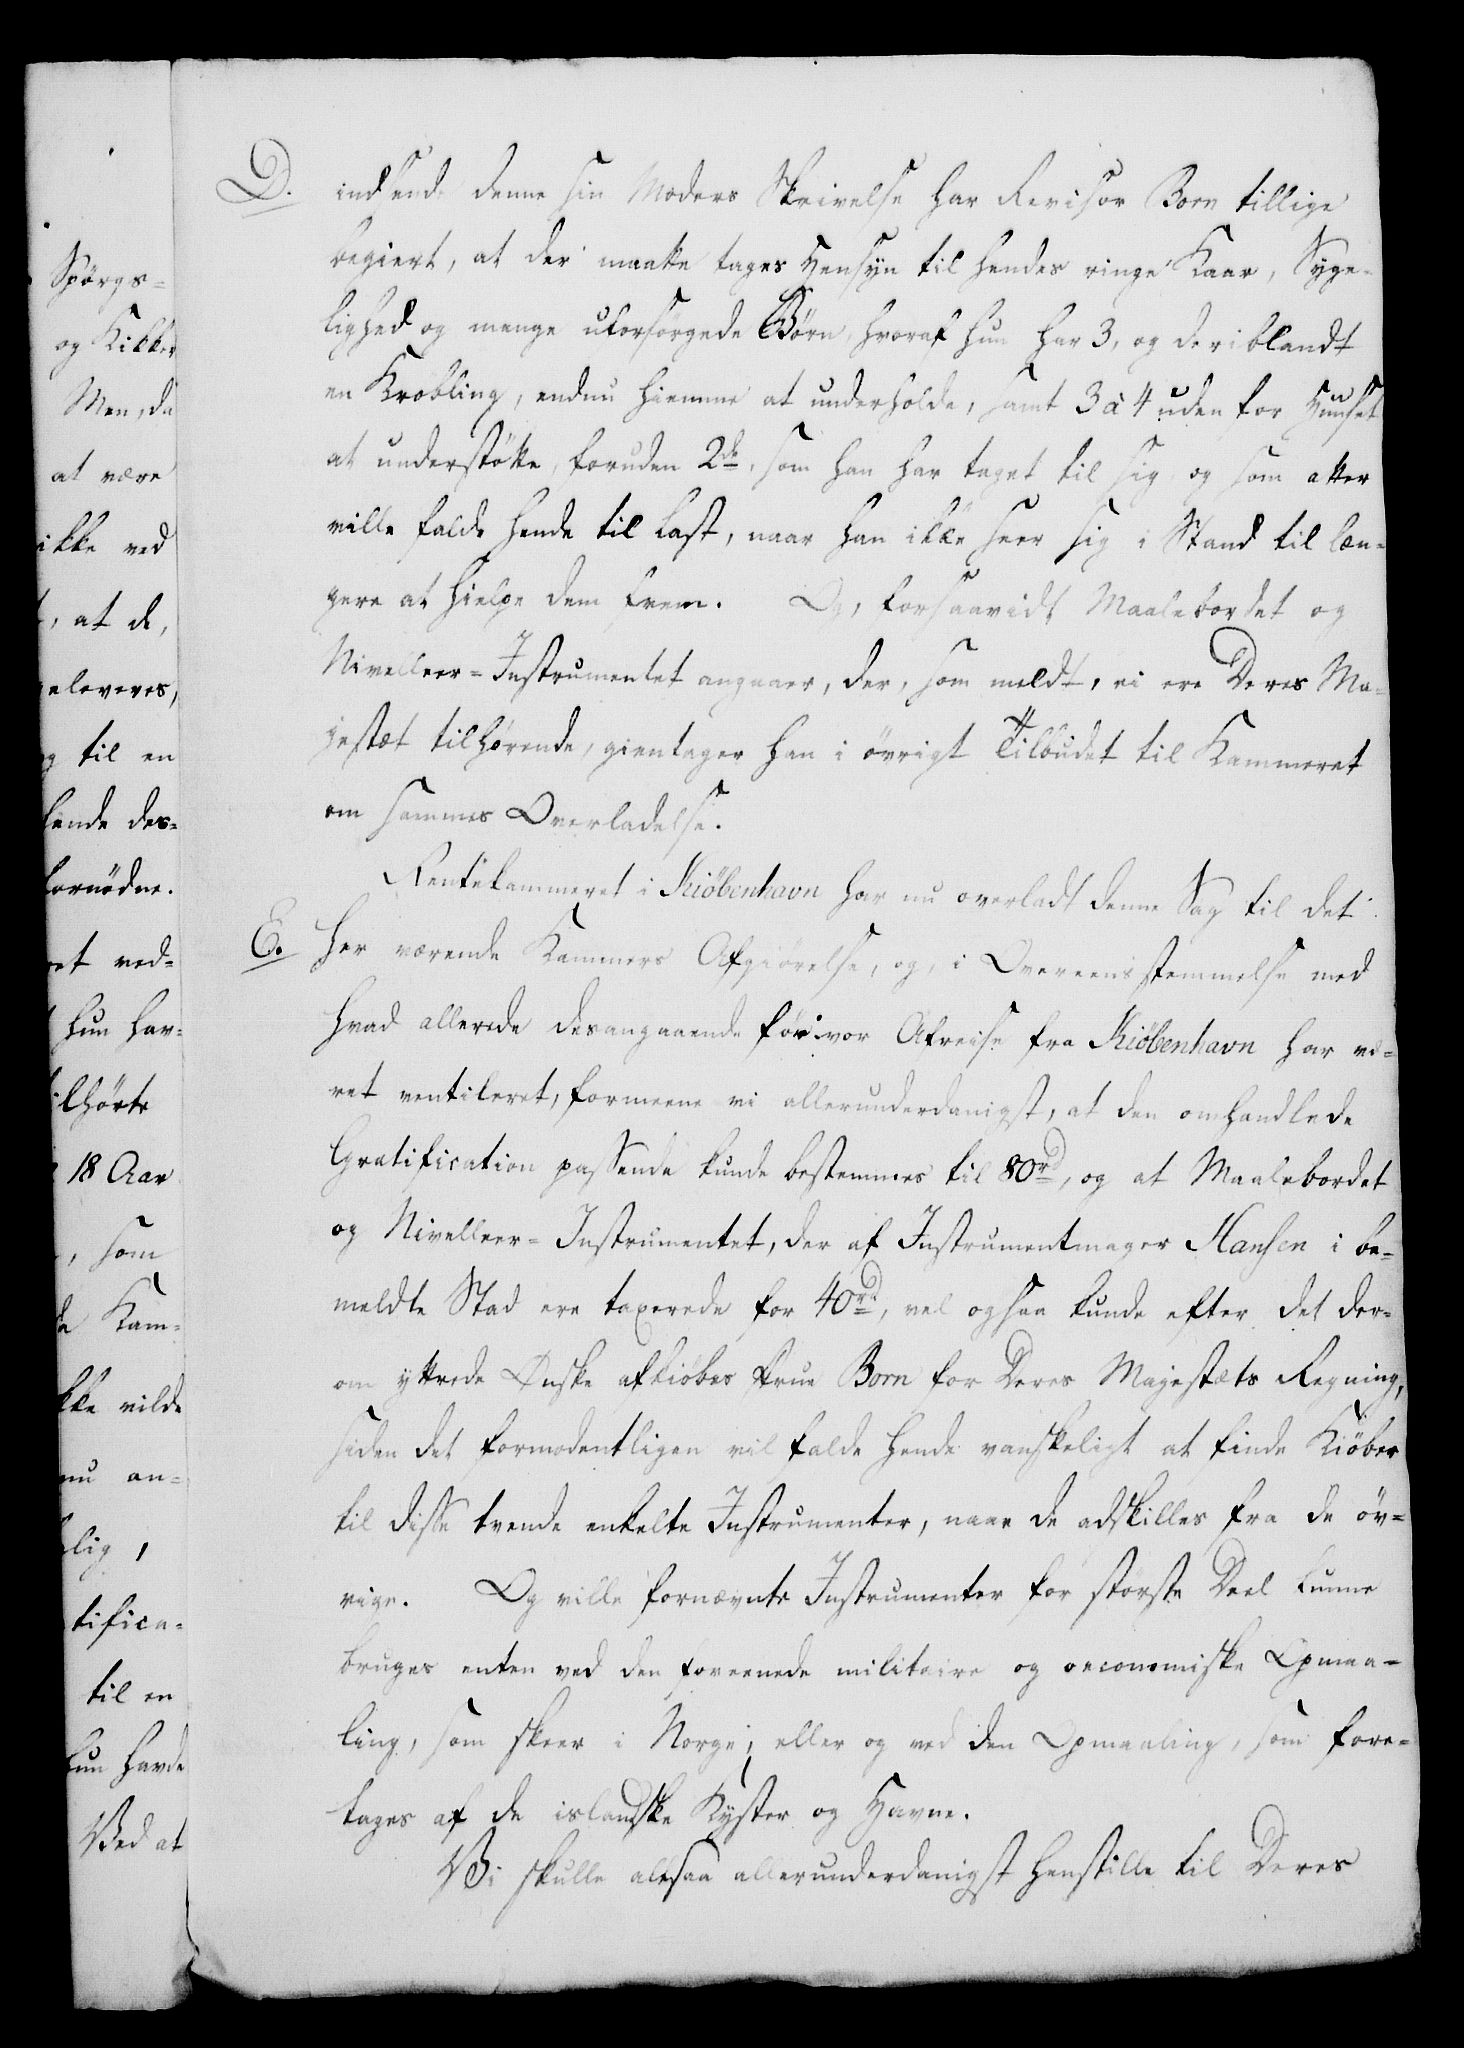 Spörgs=
og Kikker
Men, da
at være
ikke ved
, at de,
til en
des=
fornödne.
ved=
hun har=
18 Aar
, som
Kam=
vilde
nu an=
lig,
tifica=
til en
hun havde
Ved at
D. indsende denne sin Moders Skrivelse har Revisor Born tillige
begiert, at der maatte tages Hensyn til hendes ringe Kaar, Syge=
lighed og mange uforsörgede Börn, hvoraf hun har 3, og deriblandt
en Kröbling, endnu hiemme at underholde, samt 3 à 4 uden for Huuset
at understötte, foruden 2de, som han har taget til sig, og som atter
ville falde hende til Last, naar han ikke seer sig i Stand til læn=
gere at hielpe dem frem. Og, forsaavidt Maalebordet og
Nivelleer=Instrumentet angaaer, der, som meldt, ei ere Deres Ma=
jestæt tilhörende, gientager han i övrigt Tilbudet til Kammeret
om sammes Overladelse.
Rentekammeret i Kiöbenhavn har nu overladt denne Sag til det
E. her værende Kammers Afgiörelse, og, i Overeensstemmelse med
hvad allerede desangaaende för vor Afreise fra Kiöbenhavn har væ=
ret ventileret, formeene vi allerunderdanigst, at den omhandlede
Gratification passende kunde bestemmes til 80rd, og at Maalebordet
og Nivelleer=Instrumentet, der af Instrumentmager Hansen i be=
meldte Stad ere taxerede for 40rd, vel ogsaa kunde efter det der=
om yttrede Önske afkiöbes Frue Born for Deres Majestæts Regning,
siden det formodentligen vil falde hende vanskeligt at finde Kiöber
til disse tvende enkelte Instrumenter, naar de adskilles fra de öv=
rige. Og ville fornævnte Instrumenter for störste Deel kunne
bruges enten ved den foreenede militaire og oeconomiske Opmaa=
ling, som skeer i Norge, eller og ved den Opmaaling, som fore=
tages af de islandske Kyster og Havne.
Vi skulle altsaa allerunderdanigst henstille til Deres